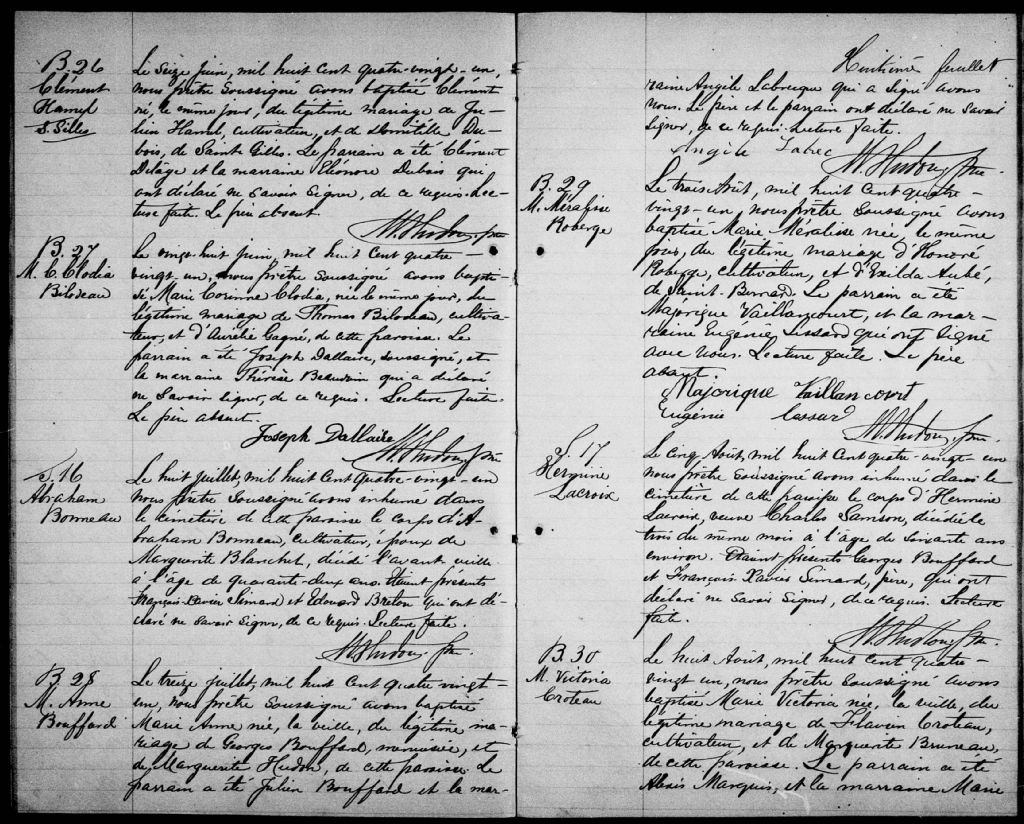 B. 26
Clément
Hamel
S. Gilles
Le Seize Juin, mil huit cent quatre-vingt-un,
nous prêtre soussigné avons baptisé Clément
né, le même jour, du légitime mariage de Ju-
lien Hamel, cultivateur, et de Domitille Du-
bois, de Sainte Gilles. Le parrain a été Clément
Délâge et la marraine Eléonore Dubois qui
ont déclaré ne savoir signer, de ce requis. Lec-
ture faite. Le père absent.
B. 27
M. C. Clodia
Bilodeau
Le vingt huit Juin, mil huit cent quatre-
vingt un, nous prêtre soussigné avons bapti-
sé Marie Corinne Clodia, née le même jour, du
légitime mariage de Thomas Bilodeau, cultiva-
teur, et d'Aurélie Gagné, de cette paroisse. Le
parrain a été Joseph Dallaire, soussigné, et
la marraine Thérèse Beaudoin qui a déclaré
ne savoir signer, de ce requis. Lecture faite.
Le père absent.
Joseph Dallaire
S. 16
Abraham
Bonneau
Le huit Juillet, mil huit cent quatre-vingt-un
nous prêtre soussigné avons inhumé dans
le cimetière de cette paroisse le corps d'A-
braham Bonneau, cultivateur, époux de
Marguerite Blanchet, décédé l'avant veille
à l'âge de quarante-deux ans. Etaient présents
François-Xavier Simard et Edouard Breton qui ont dé-
claré ne savoir signer, de ce requis. Lecture faite.
B. 28
M. Anne
Bouffard
Le treize Juillet, mil huit cent quatre vingt-
un, nous prêtre soussigné avons baptisé
Marie Anne née, la veille, du légitime ma-
riage de Georges Bouffard, menuisier, et
de Marguerite Hudon, de cette paroisse. Le
parrain a été Julien Bouffard et la mar-
Huitième feuillet
raine Angèle Labrecque qui a signé avons
nous. Le père et le parrain ont déclaré ne savoir
signer, de ce requis. Lecture faite.
Angèle Labrec
B. 29
M. Méralise
Roberge
Le trois Août, mil huit cent quatre-
vingt-un, nous prêtre soussigné avons
baptisé Marie Méralise née, le même
jour, du légitime mariage d'Honoré
Roberge, cultivateur, et d'Exilda Aubé,
de Saint-Bernard. Le parrain a été
Majorique Vaillancourt, et la mar-
raine Eugénie Lessard qui ont signé
avec nous. Lecture faite. Le père
absent.
Majorique Vaillancourt
Eugénie Lessard
S. 17
Hermine
Lacroix
Le cinq Août, mil huit cent quatre-vingt-un
nous prêtre soussigné avons inhumé dans le
cimetière de cette paroisse le corps d'Hermine
Lacroix, veuve Charles Samson, décédée le
trois du même mois à l'âge de soixante ans
environ. Etaient présents Georges Bouffard
et François Xavier Simard, père, qui ont
déclaré ne savoir signer, de ce requis. Lecture
faite.
B. 30
M. Victoria
Croteau
Le huit Août, mil huit cent quatre-
vingt un, nous prêtre soussigné avons
baptisé Marie Victoria née, la veille, du
légitime mariage de Flavien Croteau,
cultivateur, et de Marguerite Bruneau,
de cette paroisse. Le parrain a été
Alexis Marquis, et la marraine Marie